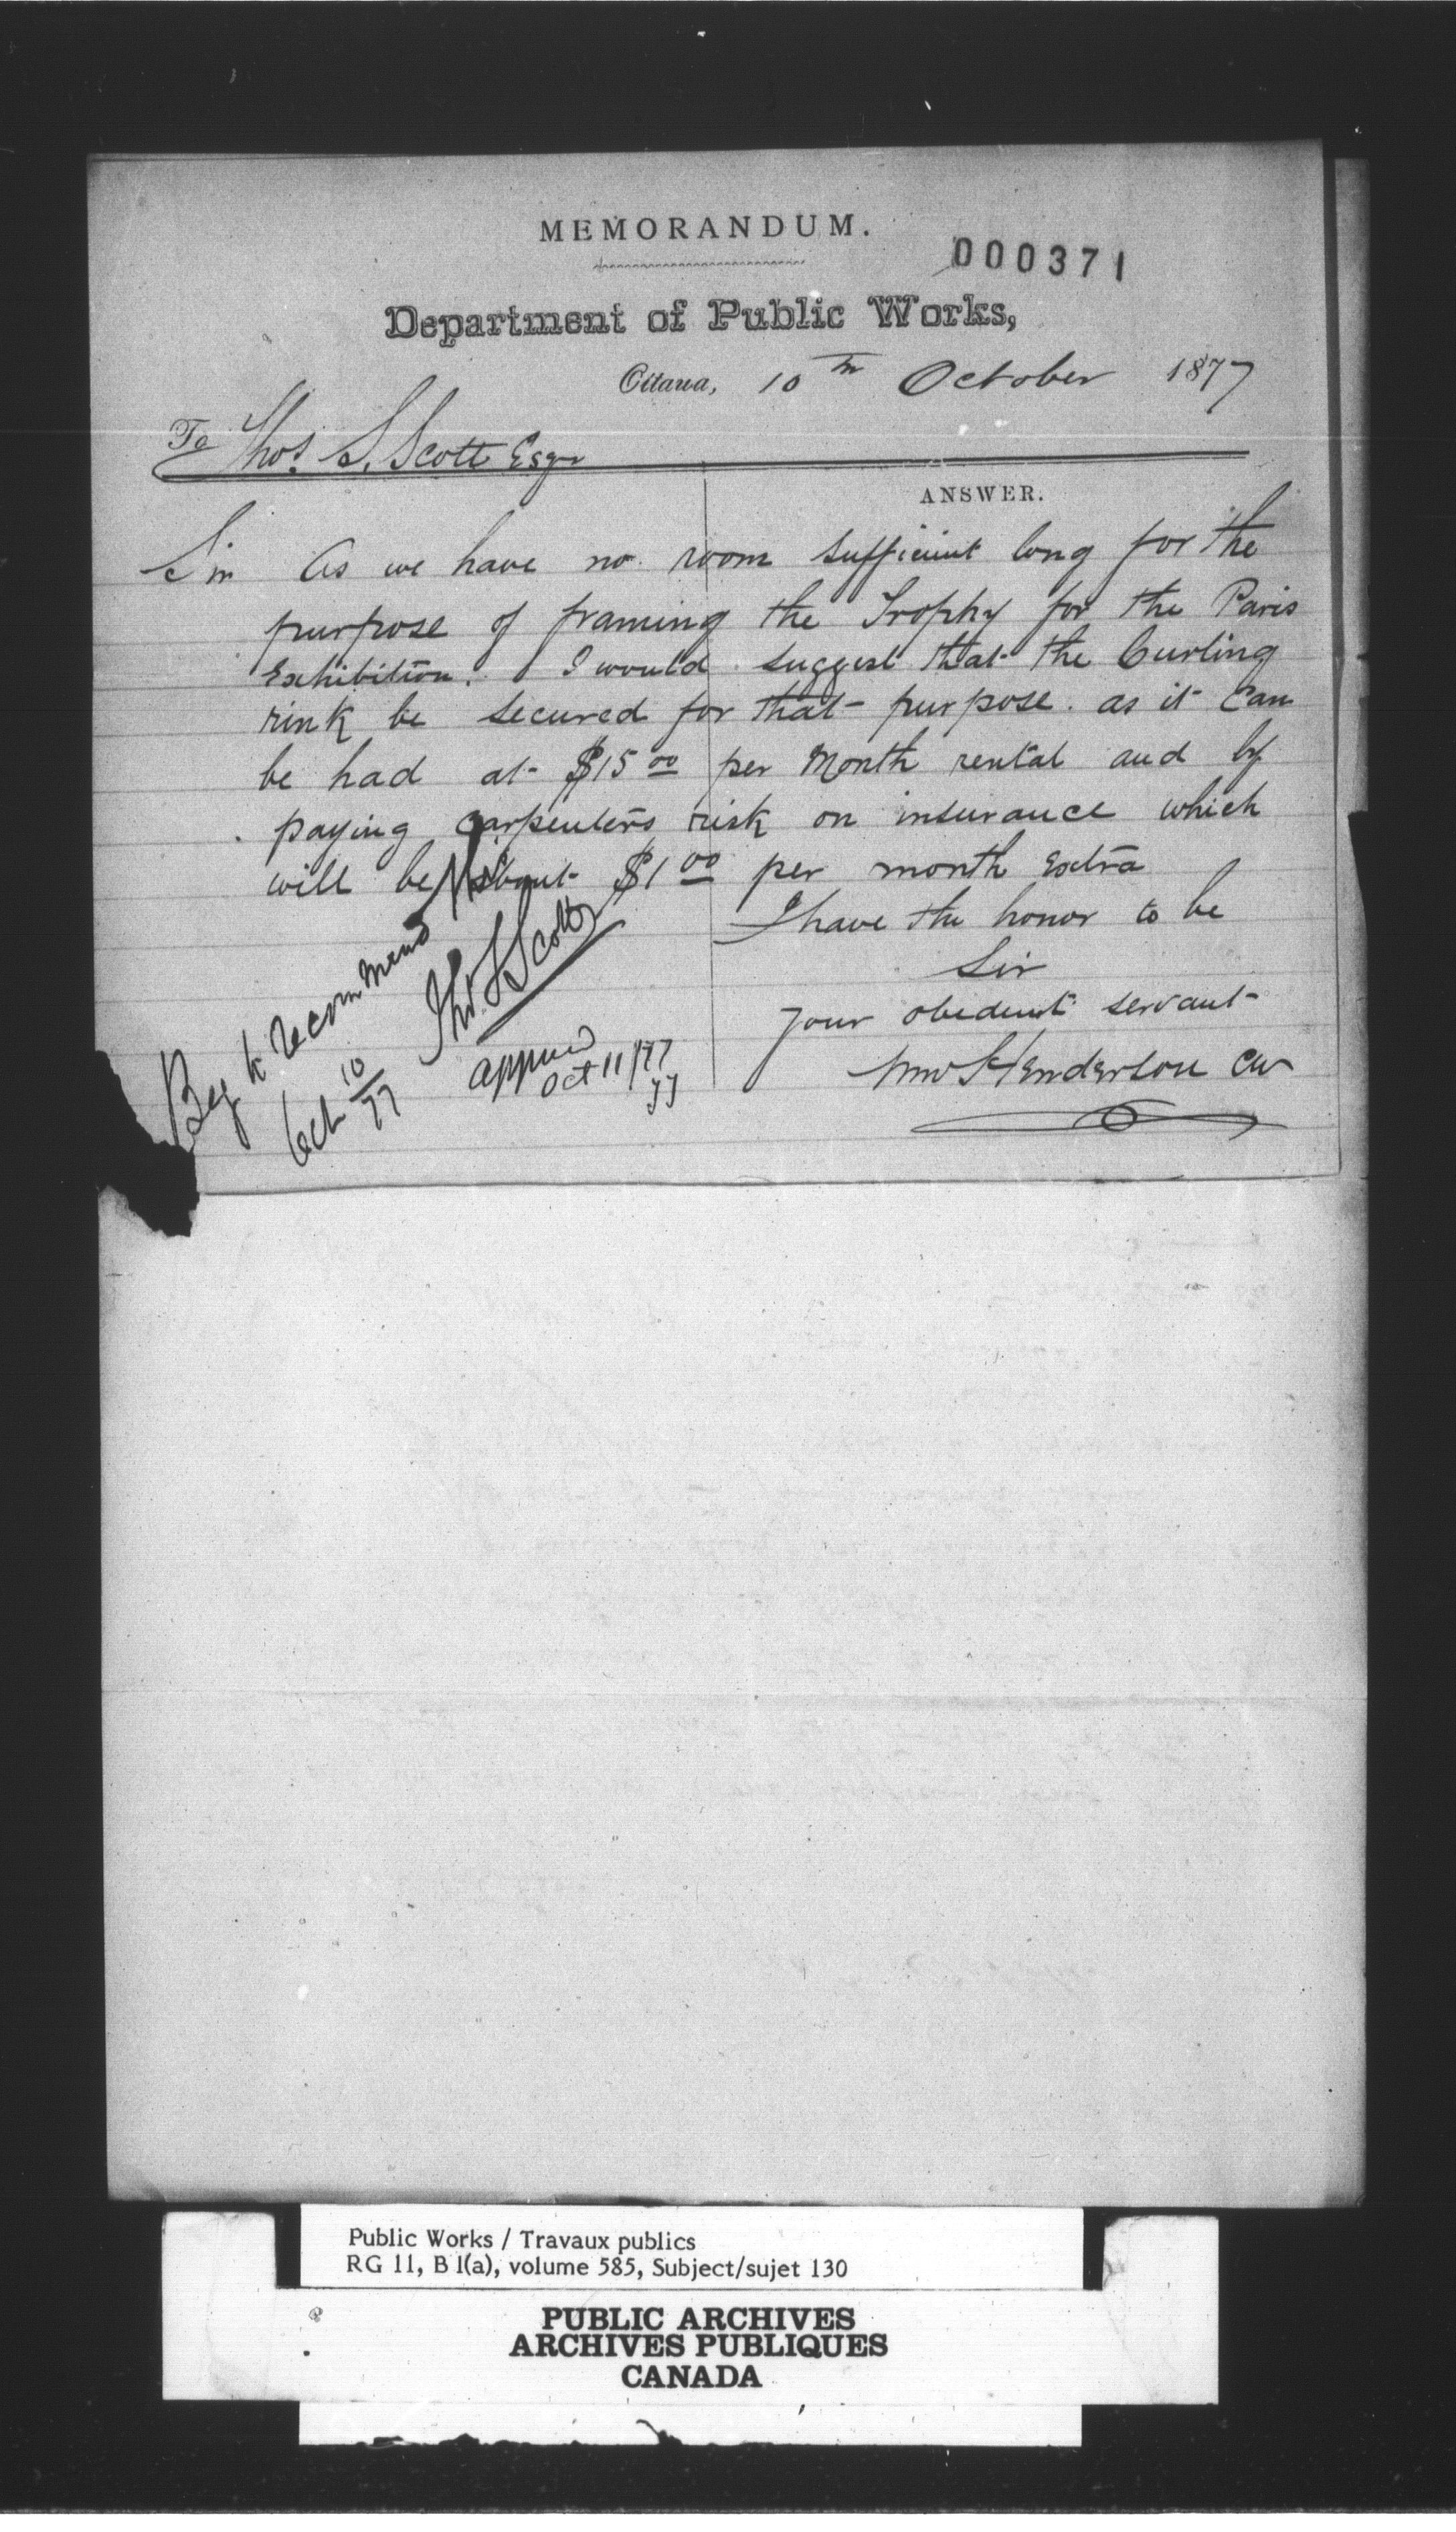 MEMORANDUM.
000371
Department of Public Works,
Ottawa, 10th October 1877
To Thos. S. Scott Esqr
ANSWER.
Sir As we have no room sufficient long for the
purpose of framing the Trophy for the Paris
Exhibition. I would suggest that the Curling
rink be secured for that purpose. as it can
be had at $15 00 per Month rental and by
paying carpenters risk on insurance which
will be about $1 00 per month Extra
I have the honor to be
Sir
your obedient servant
Wm Henderson CW
Beg to recommend this
Thos S Scott
Oct 10/77
approved
Oct 11/77
Public Works / Travaux publics
RG 11, B 1(a), volume 585, Subject/sujet 130
PUBLIC ARCHIVES
ARCHIVES PUBLIQUES
CANADA